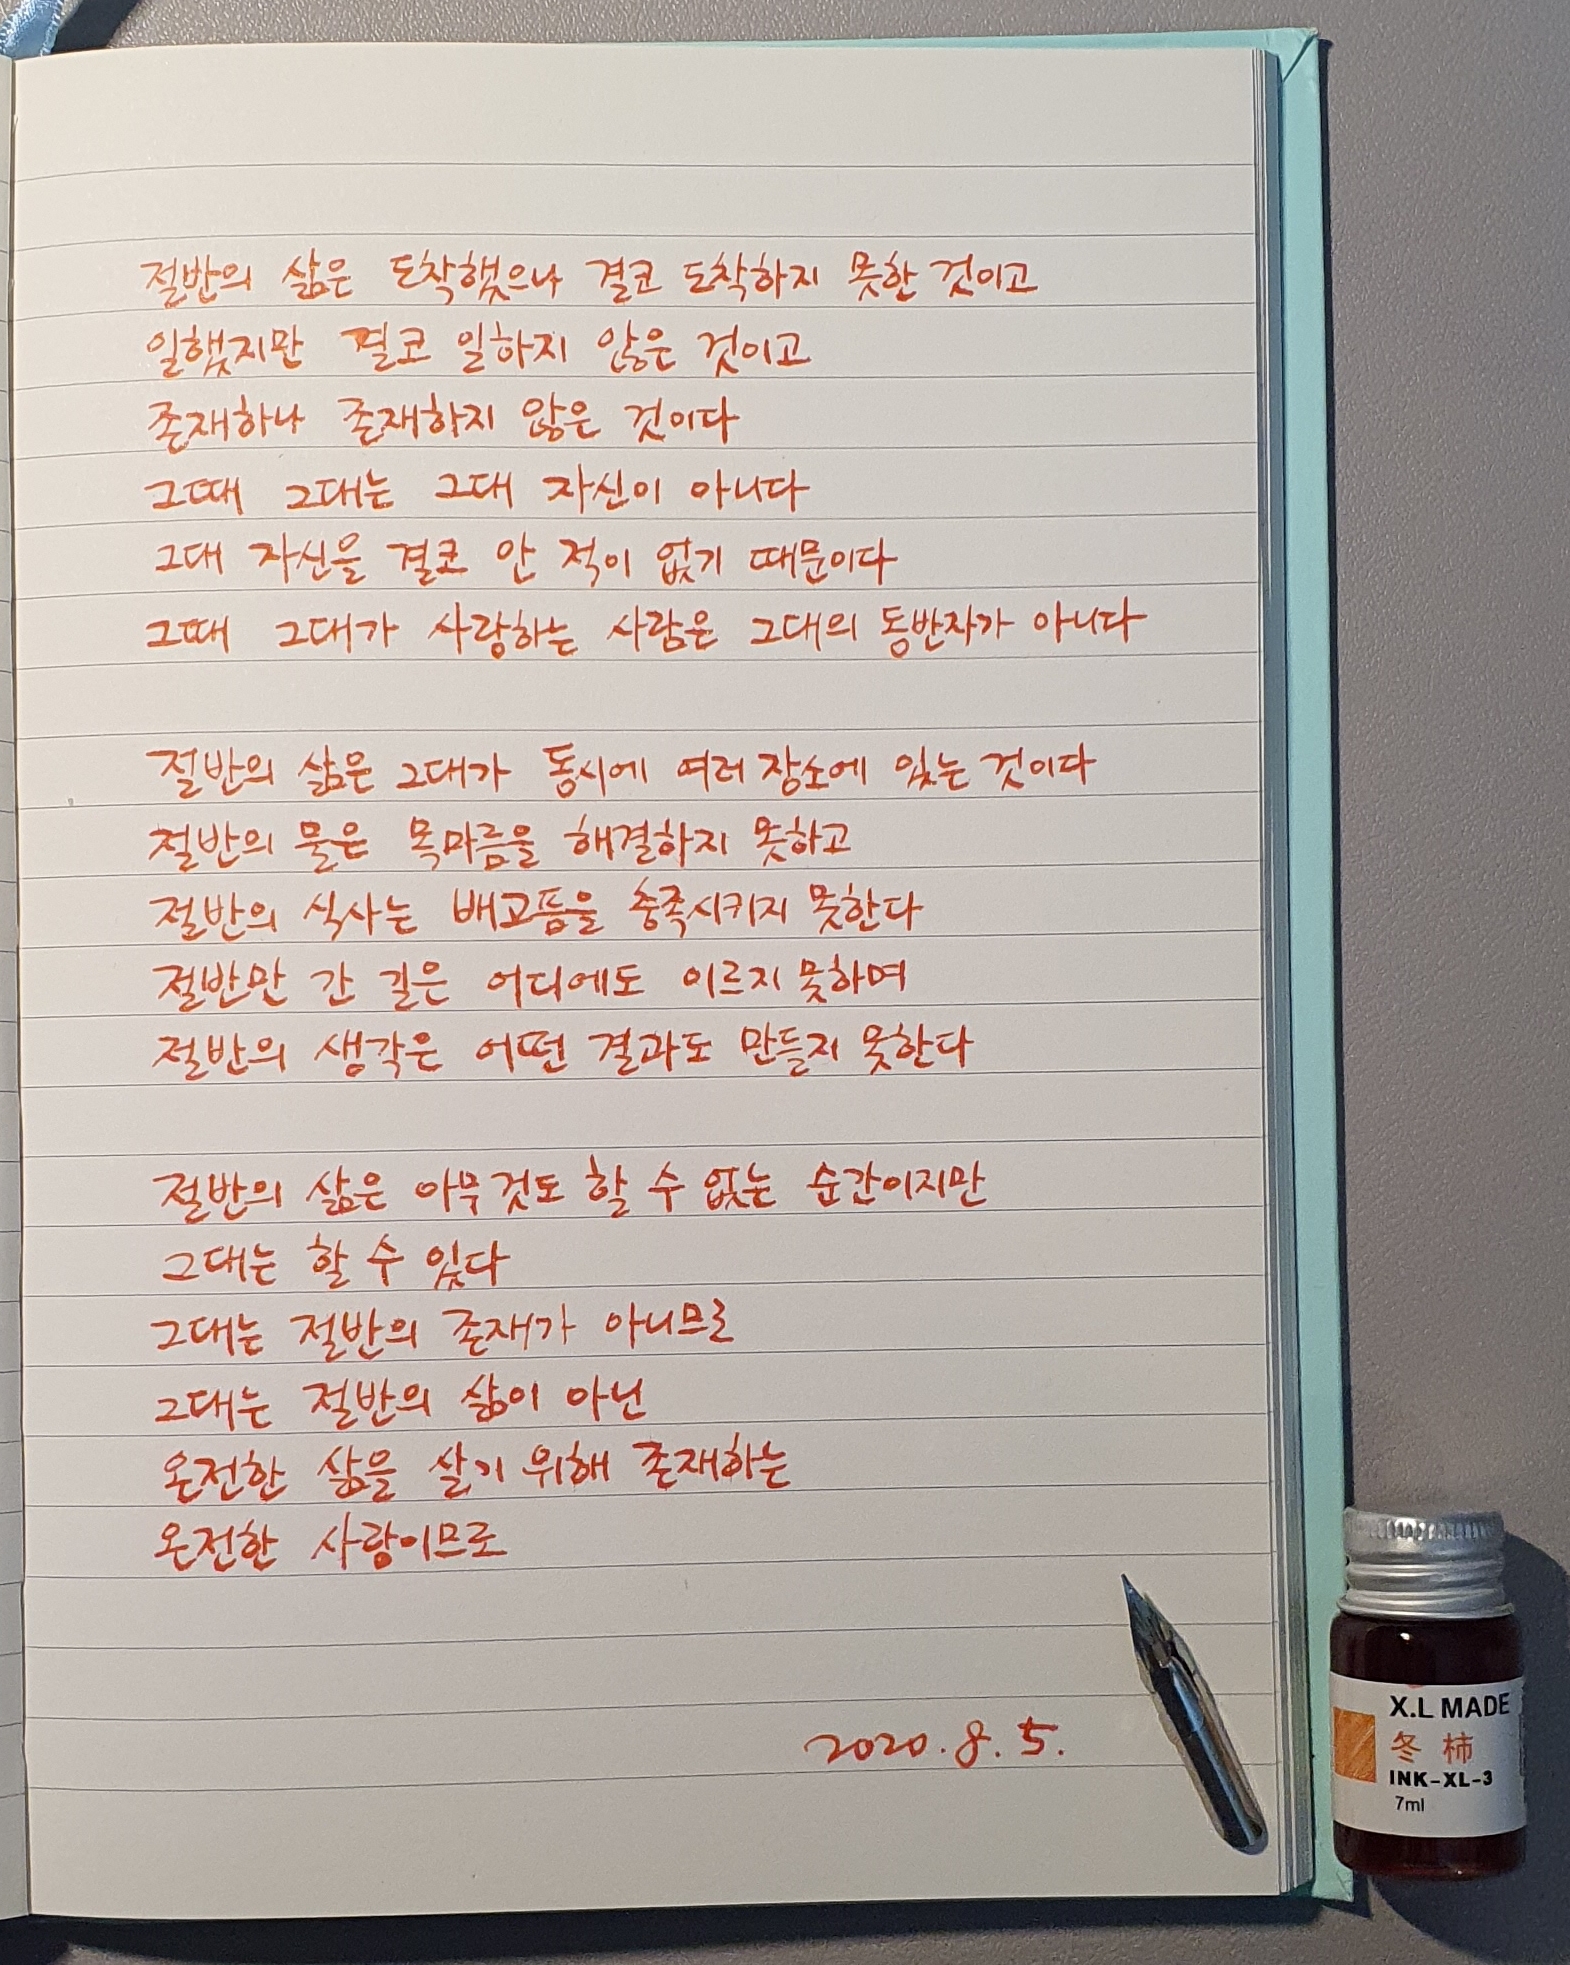 절반의 삶은 도착했으나 결코 도착하지 못한 것이고
일했지만 결코 일하지 않은 것이고
존재하나 존재하지 않은 것이다
그때 그대는 그대 자신이 아니다
그대 자신을 결코 안 적이 없기 때문이다
그때 그대가 사랑하는 사람은 그대의 동반자가 아니다
절반의 삶은 그대가 동시에 여러 장소에 있는 것이다
절반의 물은 목마름을 해결하지 못하고
절반의 식사는 배고픔을 충족시키지 못한다
절반만 간 길은 어디에도 이르지 못하며
절반의 생각은 어떤 결과도 만들지 못한다
절반의 삶은 아무것도 할 수 없는 순간이지만
그대는 할 수 있다
그대는 절반의 존재가 아니므로
그대는 절반의 삶이 아닌
온전한 삶을 살기 위해 존재하는
온전한 사람이므로
2020. 8. 5.
X.L MADE
冬柿
INK-XL-3
7ml